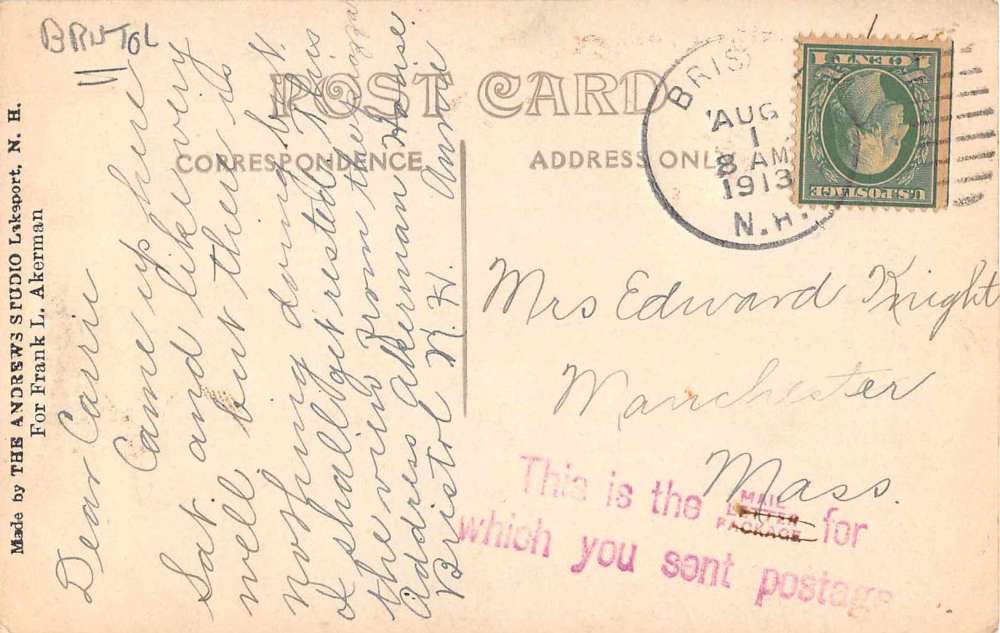 BRISTOL
Made by THE ANDREWS STUDIO Lakeport, N. H.
For Frank L. Akerman
POST CARD
CORRESPONDENCE
ADDRESS ONLY
Dear Carrie
Came up here
Sat. and like very
well but there is
nothing doing but
I shall get rested. This
the view from the
Address Akerman House
Bristol N. H. Annie
BRIS
AUG
1
8 AM
1913
N.H.
1 CENT 1
U.S. POSTAGE
Mrs Edward Knight
Manchester
Mass.
This is the MAIL LETTER PACKAGE for
which you sent postage